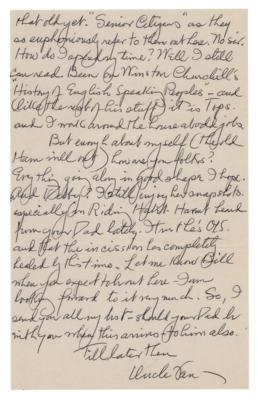 that old yet. "Senior Citizens" as they
as euphoniously refer to them out here. No sir.
How do I spend my time? Well I still
can read Been by Winston Churchill's
"History of English Speaking Peoples - and
like the rest of his stuff it is Tops.
and I work around the house at odd jobs
But enough about myself (the old
Ham in all out) how are you folks?
Everything in good shape I hope.
And Debby? I still enjoy her snapshots.
especially in Ridin
from your Dad lately. I trust he's O.K.
and that the incission has completely
healed by this time. Let me know Bill
when you expect to be out here - I am
looking forward to it very much. So, I
send you all my best - should your Dad be
with you when this arrives to him also.
Till later then
Uncle Van